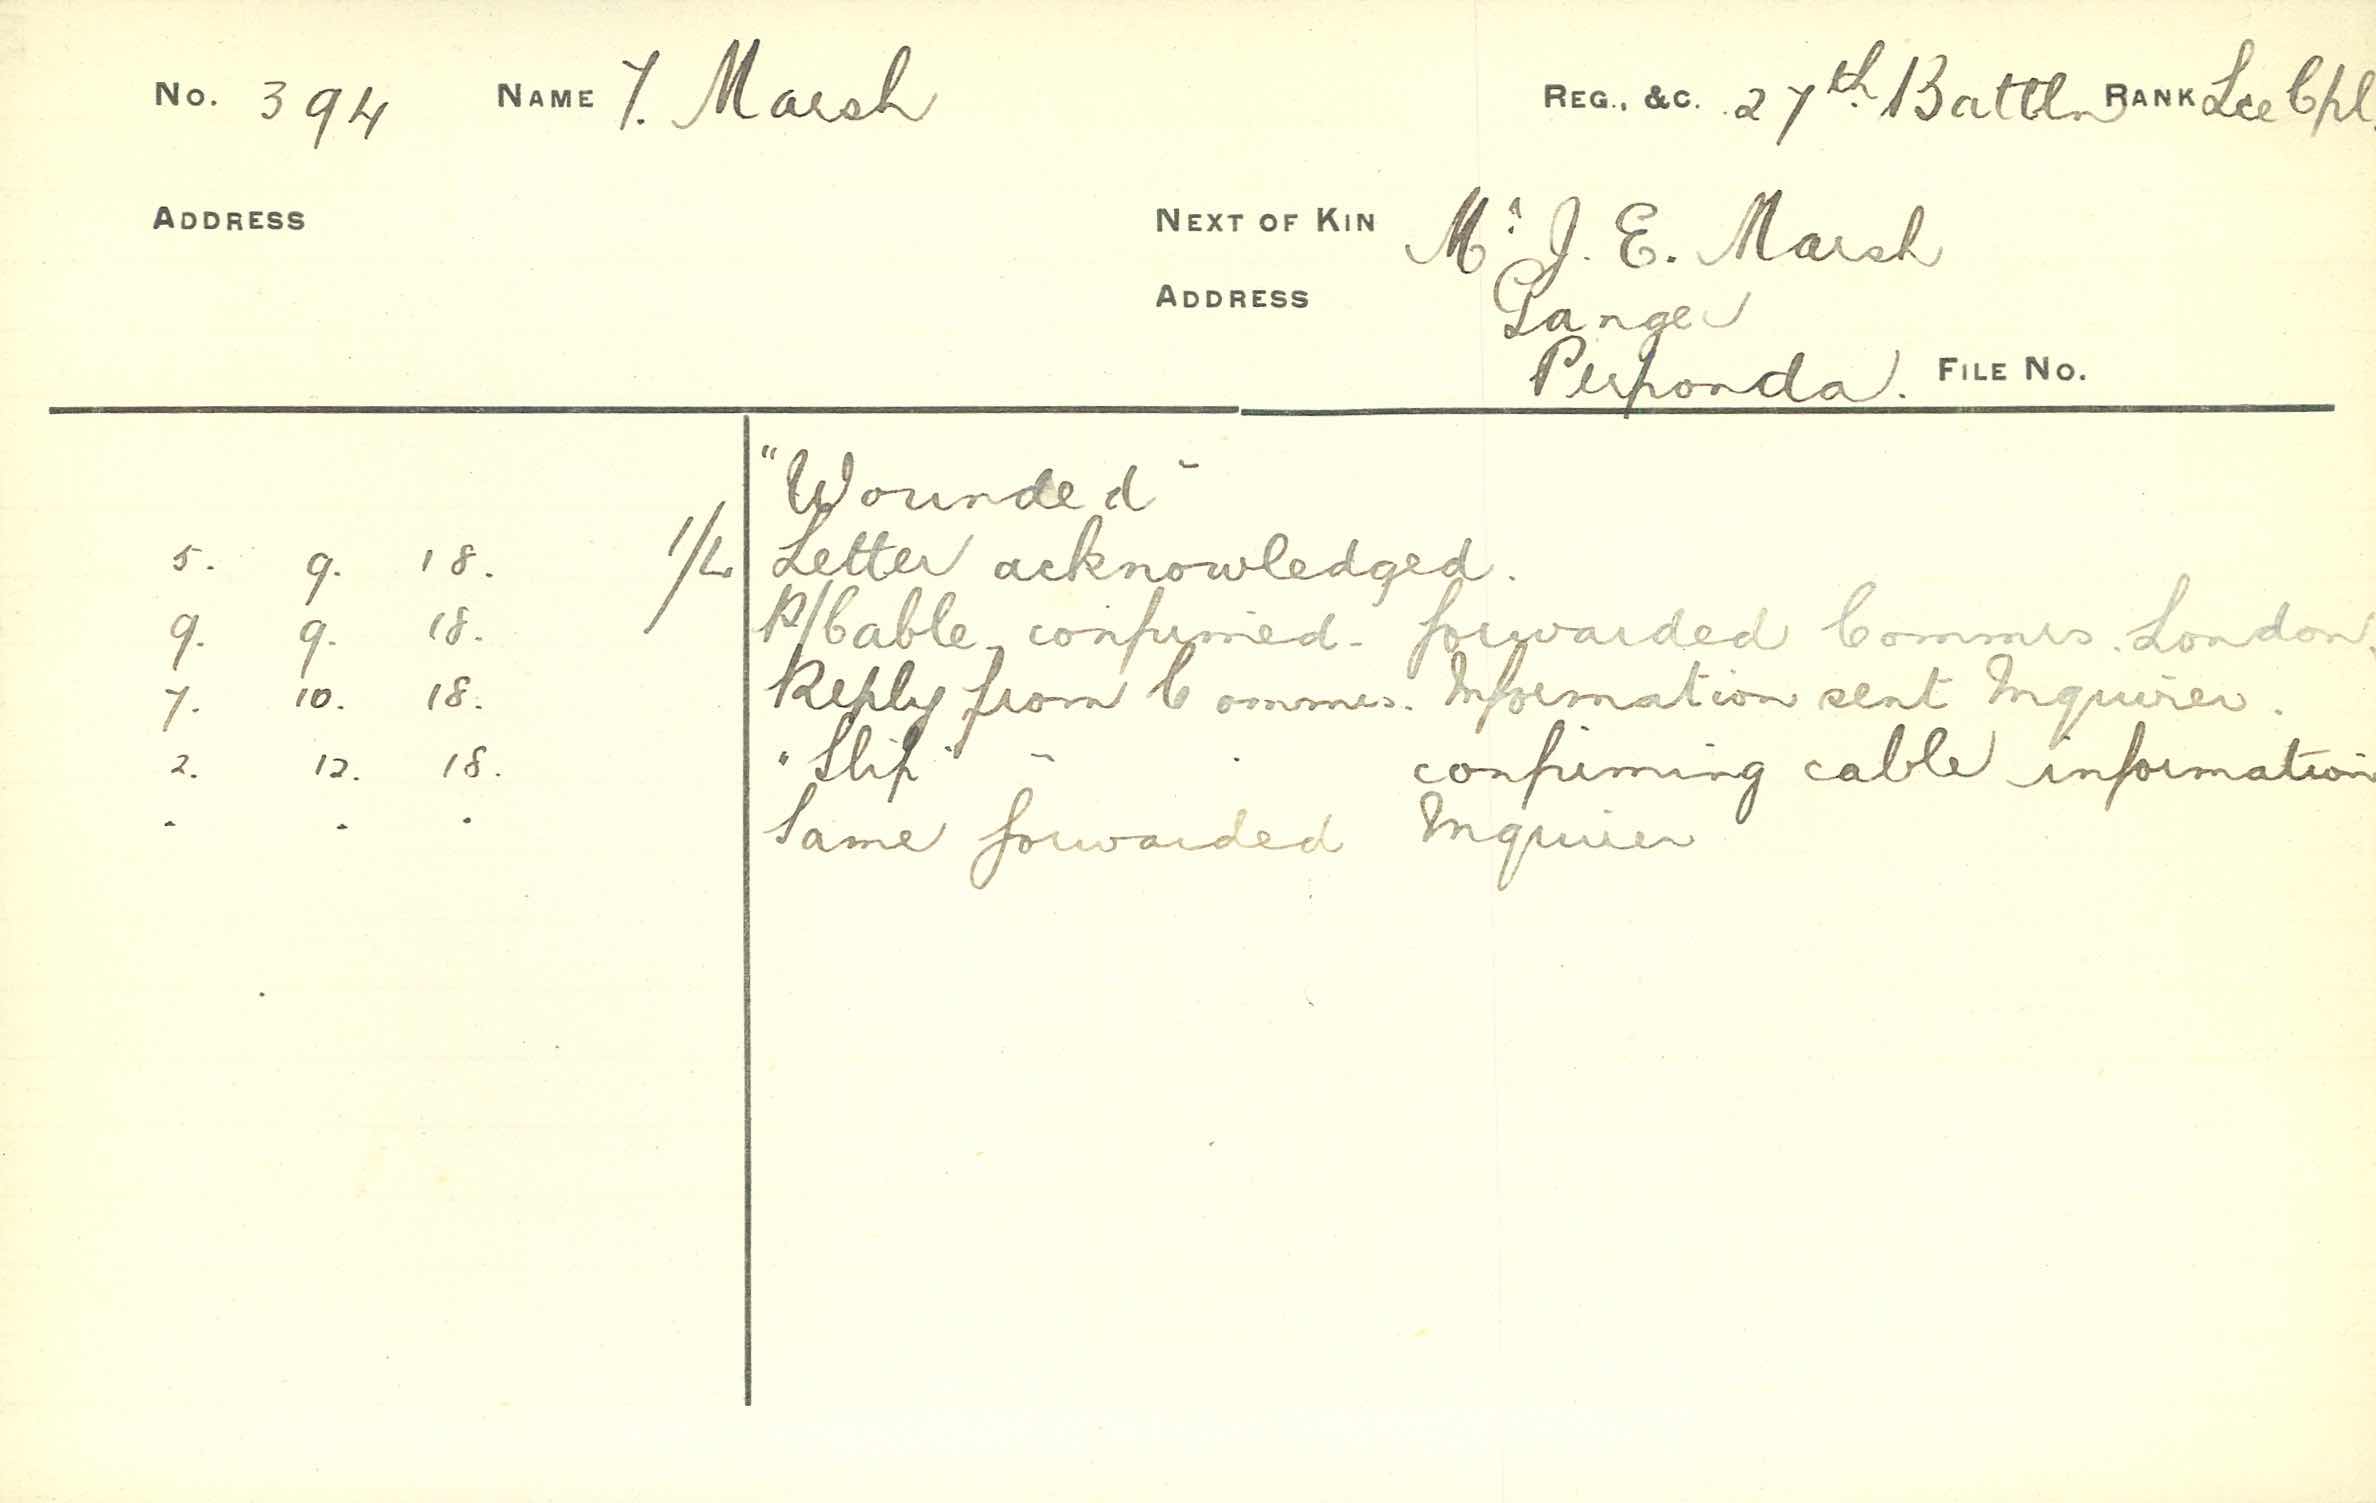 No. 394 NAME T. Marsh REG., &C. 27th Battln RANK Lce Cpl.
ADDRESS NEXT OF KIN Mr. J. E. Marsh
ADDRESS Lange
Perponda. FILE No.
"Wounded"
5. 9. 18. 1/L Letter acknowledged.
9. 9. 18. P/Cable confirmed - forwarded Commrs. London.
7. 10. 18. Reply from Commrs. Information sent Inquirer.
2. 12. 18. "Slip" " . confirming cable information
. . . Same forwarded Inquirer